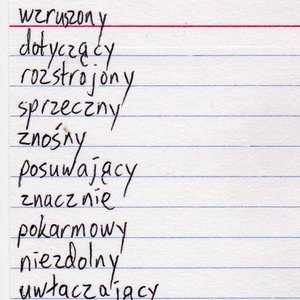 wzruszony
dotyczący
rozstrojony
sprzeczny
znośny
posuwający
znacznie
pokarmowy
niezdolny
uwłaczający